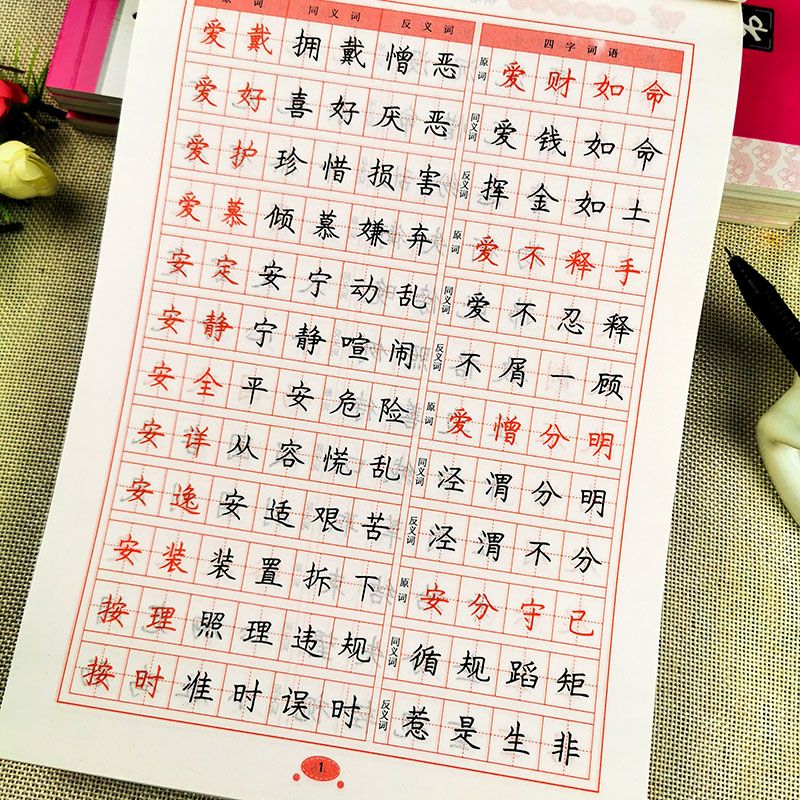 原词 同义词 反义词
爱戴 拥戴 憎恶
爱好 喜好 厌恶
爱护 珍惜 损害
爱慕 倾慕 嫌弃
安定 安宁 动乱
安静 宁静 喧闹
安全 平安 危险
安详 从容 慌乱
安逸 安适 艰苦
安装 装置 拆下
按理 照理 违规
按时 准时 误时
四字词语
原词 爱财如命
同义词 爱钱如命
反义词 挥金如土
原词 爱不释手
同义词 爱不忍释
反义词 不屑一顾
原词 爱憎分明
同义词 泾渭分明
反义词 泾渭不分
原词 安分守己
同义词 循规蹈矩
反义词 惹是生非
1